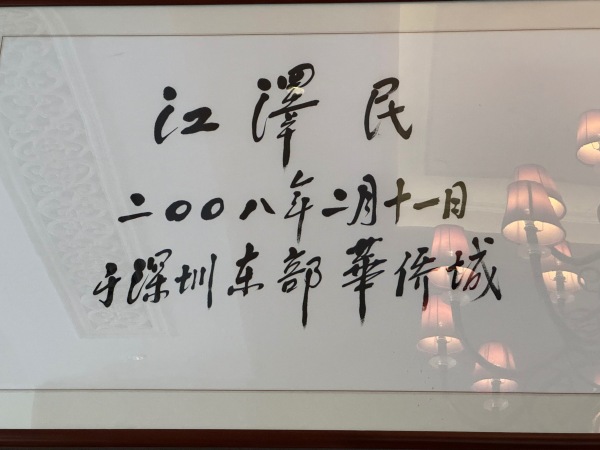 江澤民
二〇〇八年二月十一日
于深圳东部華侨城